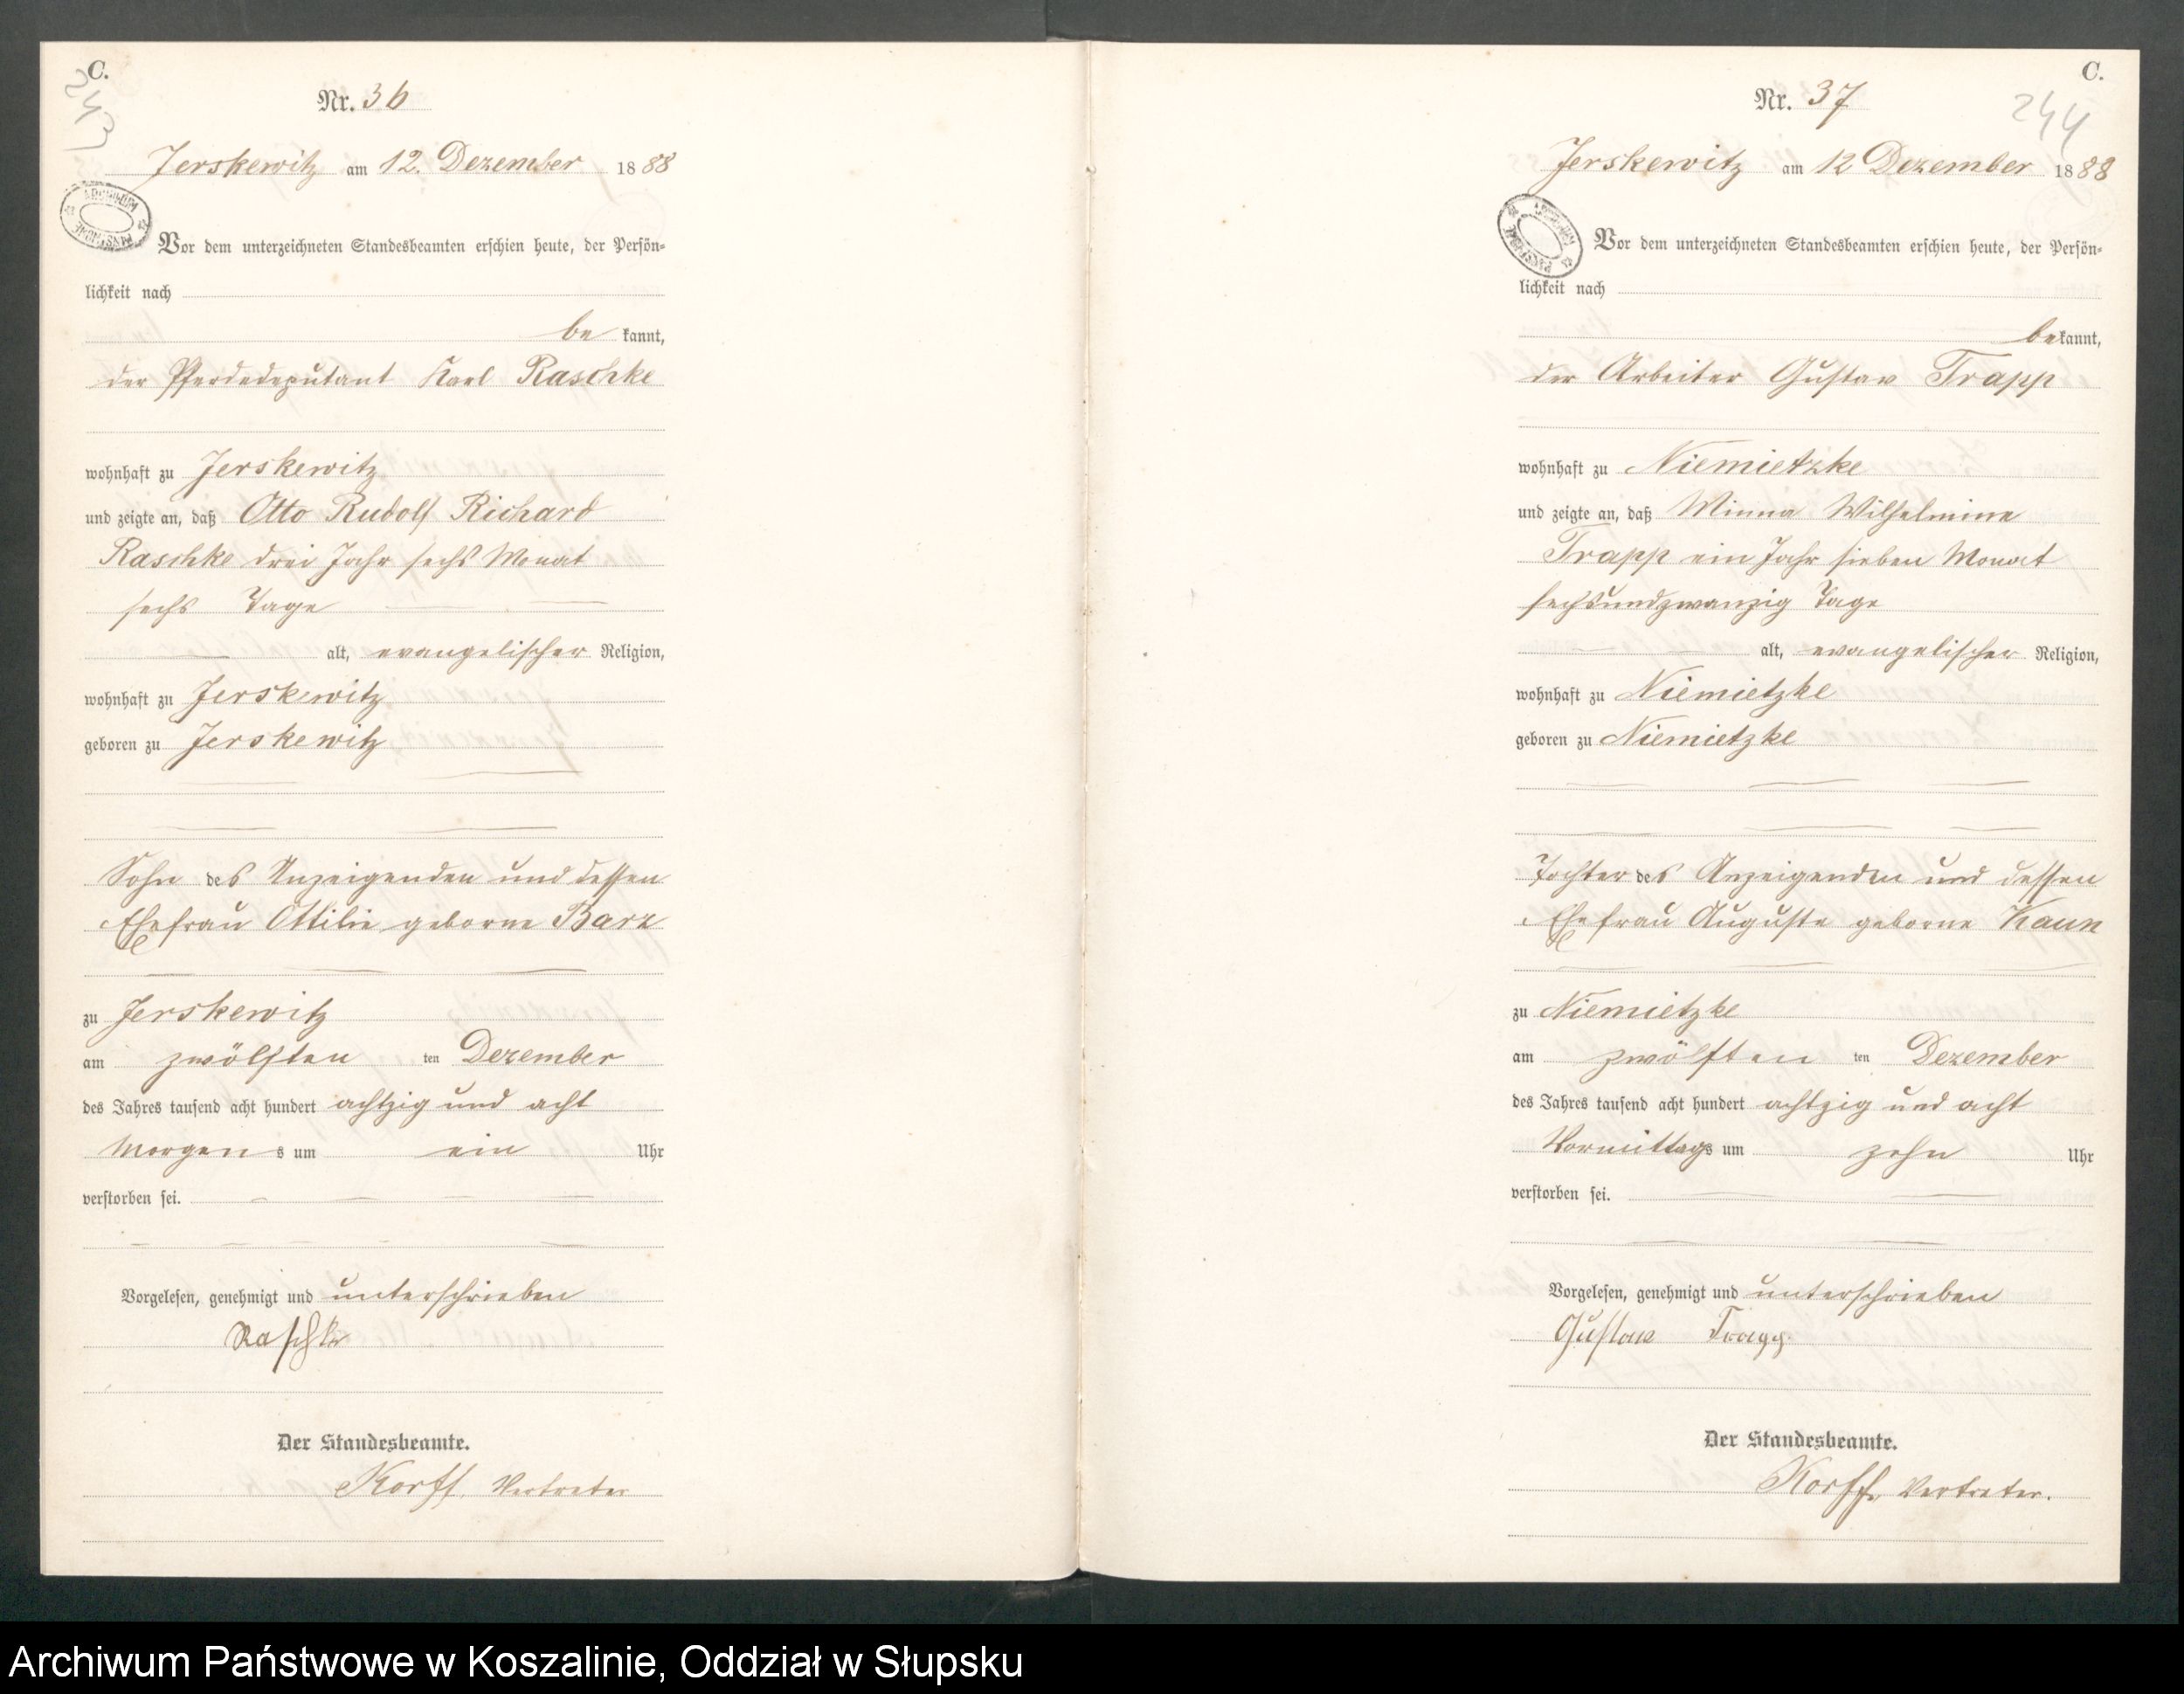 C.
243
Nr. 36
Jerskewitz am 12. Dezember 1888
Vor dem unterzeichneten Standesbeamten erschien heute, der Persön-
lichkeit nach
be kannt,
der Pferdedeputant Karl Raschke
wohnhaft zu Jerskewitz
und zeigte an, daß Otto Rudolf Richard
Raschke drei Jahr sechs Monat
sechs Tage
alt, evangelischer Religion,
wohnhaft zu Jerskewitz
geboren zu Jerskewitz
Sohn des Anzeigenden und dessen
Ehefrau Ottilie geborne Barz
zu Jerskewitz
am zwölften ten Dezember
des Jahres tausend acht hundert achtzig und acht
Morgens um ein Uhr
verstorben sei.
Vorgelesen, genehmigt und unterschrieben
Raschke
Der Standesbeamte.
Korff. Vertreter
C.
244
Nr. 37
Jerskewitz am 12 Dezember 1888
Vor dem unterzeichneten Standesbeamten erschien heute, der Persön-
lichkeit nach
bekannt,
der Arbeiter Gustav Trapp
wohnhaft zu Niemietzke
und zeigte an, daß Minna Wilhelmine
Trapp ein Jahr sieben Monat
sechsundzwanzig Tage
alt, evangelischer Religion,
wohnhaft zu Niemietzke
geboren zu Niemietzke
Tochter des Anzeigenden und dessen
Ehefrau Auguste geborne Kaun
zu Niemietzke
am zwölften ten Dezember
des Jahres tausend acht hundert achtzig und acht
Vormittags um zehn Uhr
verstorben sei.
Vorgelesen, genehmigt und unterschrieben
Gustav Trapp.
Der Standesbeamte.
Korff. Vertreter.
Archiwum Państwowe w Koszalinie, Oddział w Słupsku